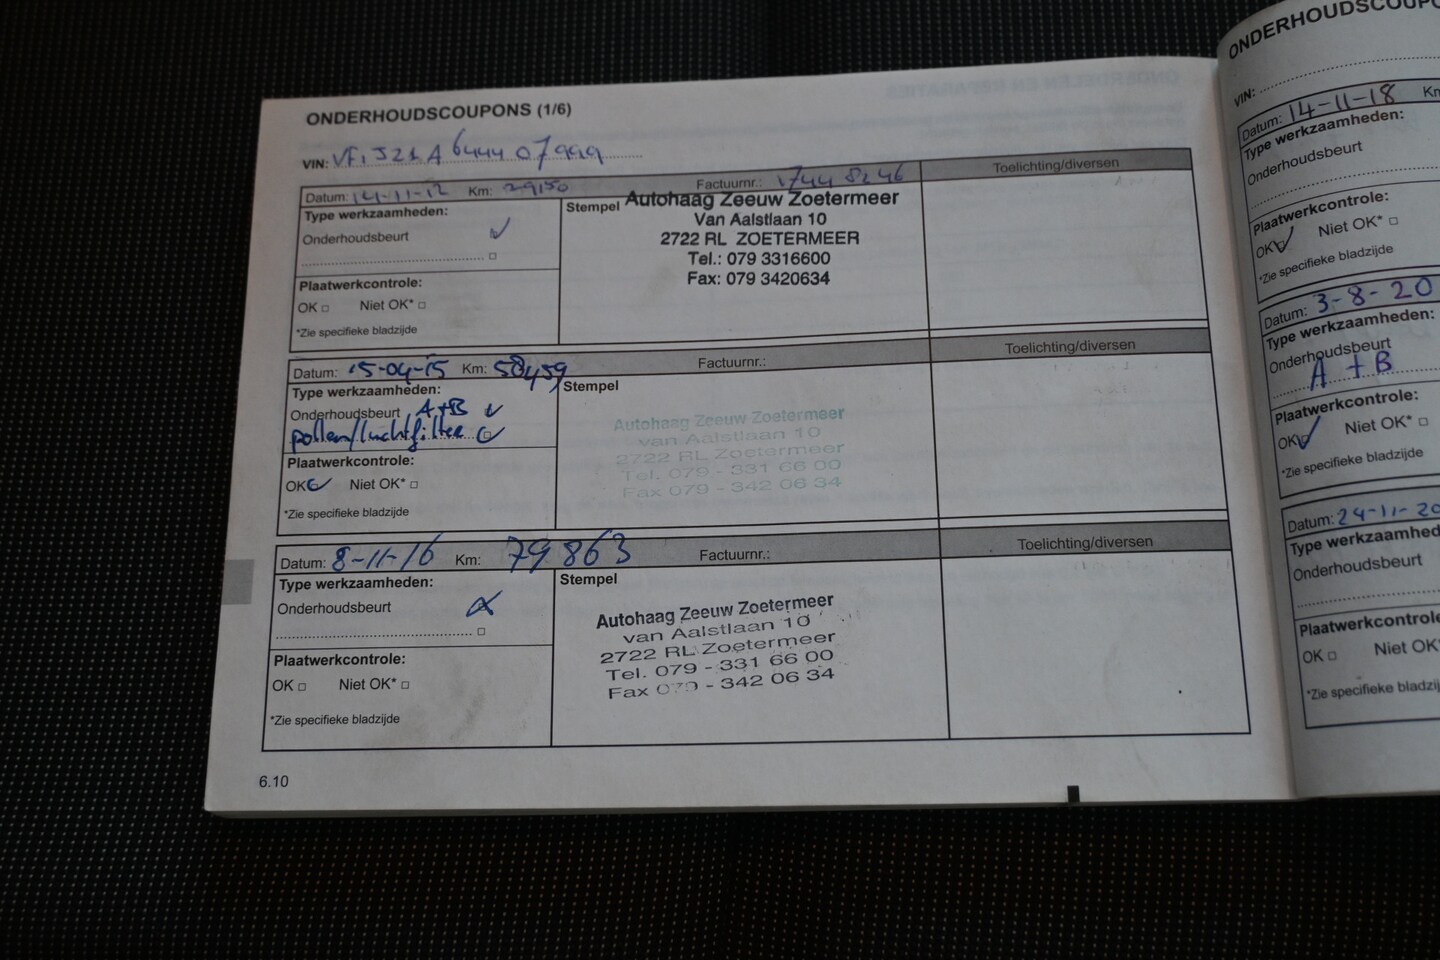 ONDERHOUDSCOUPONS (1/6)
VIN:
Datum: 14-11-12 Km: 29150 Factuurnr.: 17448246 Toelichting/diversen
Type werkzaamheden:
Onderhoudsbeurt
Stempel
Autohaag Zeeuw Zoetermeer
Van Aalstlaan 10
2722 RL ZOETERMEER
Tel.: 079 3316600
Fax: 079 3420634
Plaatwerkcontrole:
OK Niet OK*
*Zie specifieke bladzijde
Datum: 15-04-15 Km: 58459 Factuurnr.: Toelichting/diversen
Type werkzaamheden:
Onderhoudsbeurt A+B
pollen/luchtfilter
Stempel
Autohaag Zeeuw Zoetermeer
van Aalstlaan 10
2722 RL Zoetermeer
Tel. 079 - 331 66 00
Fax 079 - 342 06 34
Plaatwerkcontrole:
OK Niet OK*
*Zie specifieke bladzijde
Datum: 8-11-16 Km: 79863 Factuurnr.: Toelichting/diversen
Type werkzaamheden:
Onderhoudsbeurt
Stempel
Autohaag Zeeuw Zoetermeer
van Aalstlaan 10
2722 RL Zoetermeer
Tel. 079 - 331 66 00
Fax 079 - 342 06 34
Plaatwerkcontrole:
OK Niet OK*
*Zie specifieke bladzijde
6.10
ONDERHOUDSCOUP
VIN:
Datum: 14-11-18 Km
Type werkzaamheden:
Onderhoudsbeurt
Plaatwerkcontrole:
OK Niet OK*
*Zie specifieke bladzijde
Datum: 3-8-20
Type werkzaamheden:
Onderhoudsbeurt
A + B
Plaatwerkcontrole:
OK Niet OK*
*Zie specifieke bladzijde
Datum: 24-11-20
Type werkzaamhed
Onderhoudsbeurt
Plaatwerkcontrole
OK Niet OK
*Zie specifieke bladzij